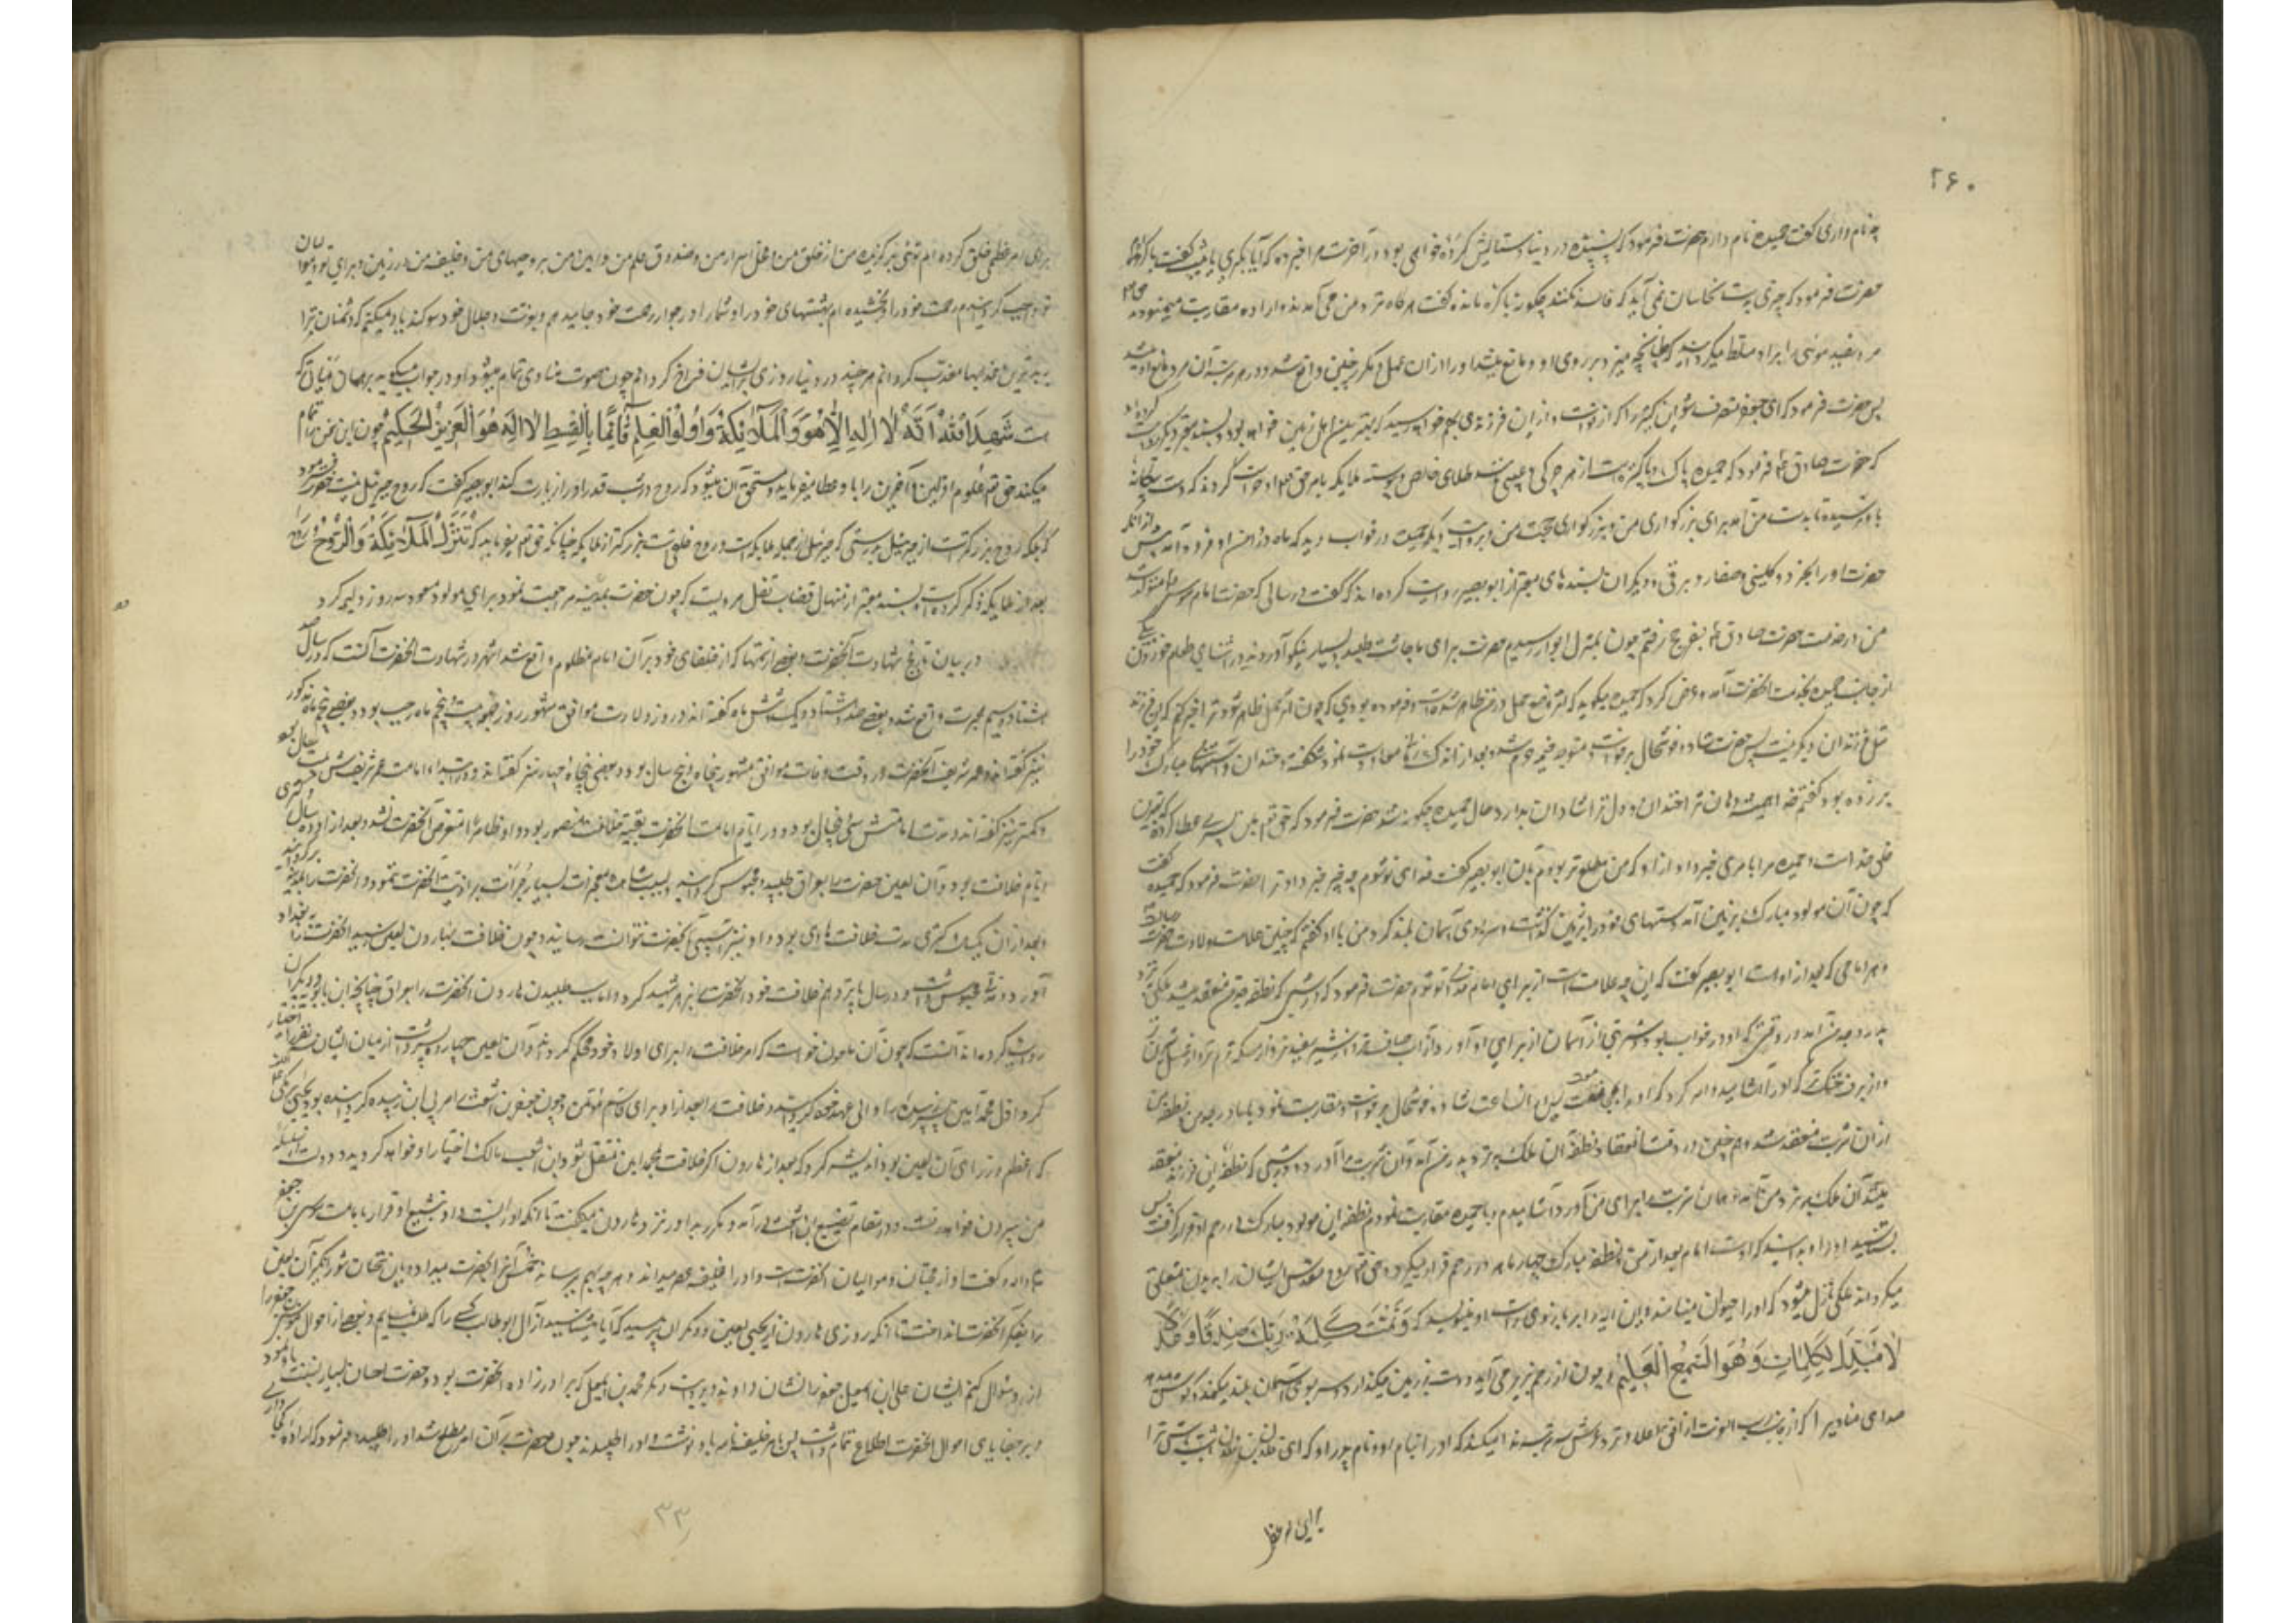 ۲۶۰
چه نام داری گفت حمیده نام دارم حضرت فرمود که پسندیده در دنیا و ستایش کرده خواهی بود در آخرت مرا خبر ده که آیا بکری یا ثیب گفت باکره‌ام
حضرت فرمود که چیزی بدست نخاسان نمی آید که فاسد نکنند چگونه تو باکره مانده گفت هرگاه نزد من می آمد و اراده مقاربت می نمود
مرد سفید موئی را بر او مسلط میگردانید که طپانچه میزد بر روی او و مانع میشد او را از آن عمل و مکرر چنین واقع شد و در هر مرتبه آن مرد مانع او میشد
پس حضرت فرمود که ای جعفر متصرف شو این کنیز را که از تو است و از این فرزندی بهم خواهد رسید که بهترین اهل زمین خواهد بود و بسند معتبر دیگر
که حضرت صادق ع فرمود که حمیده پاک و پاکیزه است از هر چرکی و عیبی مانند طلای خالص و پیوسته ملایکه بامر حق تعالی او را حراست کردند که دست بیگانه
باو نرسیده تا بدست من آمد برای بزرگواری من و بزرگواری حجت من و بروایت دیگر حمیده در خواب دید که ماه در دامن او فرود آمد پیش از آنکه
حضرت او را بخرد و کلینی و صفار و برقی و دیگران بسندهای معتبر از ابو بصیر روایت کرده اند که گفت در سالی که حضرت امام موسی ع متولد شد
من در خدمت حضرت صادق ع بسفر حج رفتم چون بمنزل ابوا رسیدیم حضرت برای ما چاشت طلبید بسیار نیکو آوردند در اثنای طعام خوردن یکی
از جانب حمیده بخدمت آنحضرت آمد و عرض کرد که حمیده میگوید که اثر وضع حمل در من ظاهر شده است و فرموده بودی که چون اثر حمل ظاهر شود ترا خبر کنم که این فرزند
مثل فرزندان دیگر نیست پس حضرت شاد و خوشحال برخواست و متوجه خیمه حرم شد و بعد از اندک زمانی معاودت نمود شکفته و خندان و آستینهای مبارک خود را
بر زده بود گفتم خدا همیشه دهان ترا خندان و دل ترا شادان بدارد حال حمیده چگونه شد حضرت فرمود که حق تعالی بمن پسری عطا کرده که بهترین
خلق خدا است و حمیده مرا بامری خبر داد از او که من مطلع تر بودم بآن ابو بصیر گفت فدای تو شوم چه چیز خبر داد ترا حضرت فرمود که حمیده گفت
که چون آن مولود مبارک بزمین آمد دستهای خود را بر زمین گذاشت و سر بسوی آسمان بلند کرد من باو گفتم که چنین است علامت ولادت حضرت رسالت
و هر امامی که بعد از او است ابو بصیر گفت که این چه علامت است از برای امام فدای تو شوم حضرت فرمود که در شبی که نطفه جد من منعقد میشد ملکی نزد
پدر جد من آمد در وقتی که او در خواب بود و شربتی از آسمان از برای او آورد از آب صافتر و از شیر سفیدتر و از مسکه نرم تر و از عسل شیرین تر
و از برف خنک تر که او را آشامید و امر کرد که او را بجماع پس از آن ساعت شاد و خوشحال برخواست و مقاربت نمود با مادر جد من نطفه جد من
از آن شربت منعقد شد و هم چنین در وقت انعقاد نطفه آن ملک نزد پدر من آمد و آن شربت را آورد و در شبی که نطفه این فرزند منعقد
میشد آن ملک نزد من آمد و همان شربت برای من آورد آشامیدم و با حمیده مقاربت نمودم نطفه این مولود مبارک در رحم او قرار گرفت پس
بشناسید او را و بدانید که او است امام بعد از من و نطفه مبارک چهار ماه در رحم قرار میگیرد و حق تعالی روح مقدس ایشان را به بدن متعلق
میگرداند ملکی نازل میشود که او را حیوان مینامند و این آیه را بر بازوی راست او مینویسد که وَتَمَّتْ كَلِمَةُ رَبِّكَ صِدْقًا وَعَدْلًا
لَا مُبَدِّلَ لِكَلِمَاتِهِ وَهُوَ السَّمِيعُ الْعَلِيمُ و چون از رحم بزیر می آید دست بر زمین میگذارد و سر بسوی آسمان بلند میکند
صدای منادیرا که از جانب رب العزت از افق اعلا ندا میکند که او را بنام او و نام پدر او که ای فلان بن فلان ثابت باش ترا
برای امر عظیمی
برای امر عظیمی خلق کرده ام توئی برگزیده من از خلق من و محل اسرار من و صندوق علم من و امین من بر وحیهای من و خلیفه من در زمین و برای تو و موالیان
تو واجب گردانیدم رحمت خود را و بخشیده ام بهشتهای خود را و شما را در جوار رحمت خود جا میدهم و بعزت و جلال خود سوگند یاد میکنم که دشمنان ترا
به بدترین عذابها معذب گردانم هر چند در دنیا روزی بر ایشان فراخ گردانم چون صوت منادی تمام میشود او در جواب میگوید
شَهِدَ اللهُ أَنَّهُ لَا إِلَهَ إِلَّا هُوَ وَالْمَلَائِكَةُ وَأُولُو الْعِلْمِ قَائِمًا بِالْقِسْطِ لَا إِلَهَ إِلَّا هُوَ الْعَزِيزُ الْحَكِيمُ چون این سخن تمام
میکند حق تعالی علوم اولین و آخرین را باو عطا میفرماید و مستحق آن میشود که روح در شب قدر او را زیارت کند ابو بصیر گفت که روح جبرئیل نیست حضرت فرمود
که بلکه روح بزرگتر است از جبرئیل بدرستی که جبرئیل از جمله ملایکه است و روح خلقی است بزرگتر از ملایکه چنانکه حق تعالی میفرماید که تَنَزَّلُ الْمَلَائِكَةُ وَالرُّوحُ
بعد از ملایکه ذکر کرده است و بسند معتبر از منهال قصاب نقل مرویست که چون حضرت بمدینه مراجعت نمود برای مولود مسعود سه روز ولیمه کرد
در بیان تاریخ شهادت آنحضرت و بعضی از ستمها که از خلفای جور بر آن امام مظلوم واقع شد اشهر در شهادت آنحضرت آنست که در سال صد
هشتاد و سیم هجرت واقع شد و بعضی صد و هشتاد و یک و شش ماه گفته اند و روز ولادت موافق مشهور روز جمعه بیست و پنجم ماه رجب بود و بعضی پنجم ماه مذکور
نیز گفته اند و عمر شریف آنحضرت در وقت وفات موافق مشهور پنجاه و پنج سال بود و بعضی پنجاه و چهار نیز گفته اند
و کمتر نیز گفته اند و مدت امامتش سی و پنج سال بود و در ایام امامت آنحضرت بقیه خلافت منصور بود و او بظاهر متعرض آنحضرت نشد و بعد از او ده سال
ایام خلافت بود و آن لعین حضرت را بعراق طلبید و محبوس گردانید و بسبب مشاهده معجزات بسیار جرأت بر اذیت آنحضرت ننمود و آنحضرت را بمدینه برگردانید
و بعد از آن یک سال و کسری مدت خلافت هادی بود و او نیز آسیبی بآنحضرت نتوانست رسانید و چون خلافت بهارون لعین رسید آنحضرت را ببغداد
آورد و مدتی محبوس داشت و در سال پانزدهم خلافت خود آنحضرت را بزهر شهید کرد و اما سبب طلبیدن هارون آنحضرت را بعراق چنانچه ابن بابویه و دیگران
روایت کرده اند آنست که چون آن ملعون خواست که امر خلافت را برای اولاد خود محکم گرداند و آن لعین چهارده پسر داشت از میان ایشان سه نفر را اختیار
کرد اول محمد امین پسر زبیده را والی عهد خود گردانید و خلافت را بعد از او برای قاسم مؤتمن و چون جعفر بن اشعث را مربی ابن زبیده گردانیده بود یحیی برمکی
که اعظم وزرای آن لعین بود اندیشه کرد که بعد از هارون اگر خلافت بمحمد امین منتقل شود ابن اشعث مالک اختیار او خواهد گردید و دولت از سلسله
من بیرون خواهد رفت و در مقام تضییع ابن اشعث برآمد و مکرر بد او را نزد هارون میگفت تا آنکه او را نسبت داد به تشیع و اقرار بامامت موسی بن جعفر
علیه السلام داد و گفت او از محبان و موالیان آنحضرت است و او را خلیفه عصر میداند و هر چه بهم میرساند خمس آنرا بآنحضرت میدهد و باین سخنان شورانگیز آن لعین
را بفکر آنحضرت انداخت تا آنکه روزی هارون از یحیی لعین و دیگران پرسید که آیا میشناسید از آل ابوطالب کسی را که طلب نمایم و بعضی از احوال موسی بن جعفر را
از او سؤال کنم ایشان علی بن اسمعیل بن جعفر را نشان دادند و بروایت دیگر محمد بن اسمعیل که برادرزاده آنحضرت بود و حضرت احسان بسیار نسبت باو مینمود
و بر خفایای احوال آنحضرت اطلاع تمام داشت پس بامر خلیفه نامه باو نوشتند و او را طلبیدند چون حضرت بر آن امر مطلع شد او را طلبید و فرمود که اراده کجا داری
۳۳